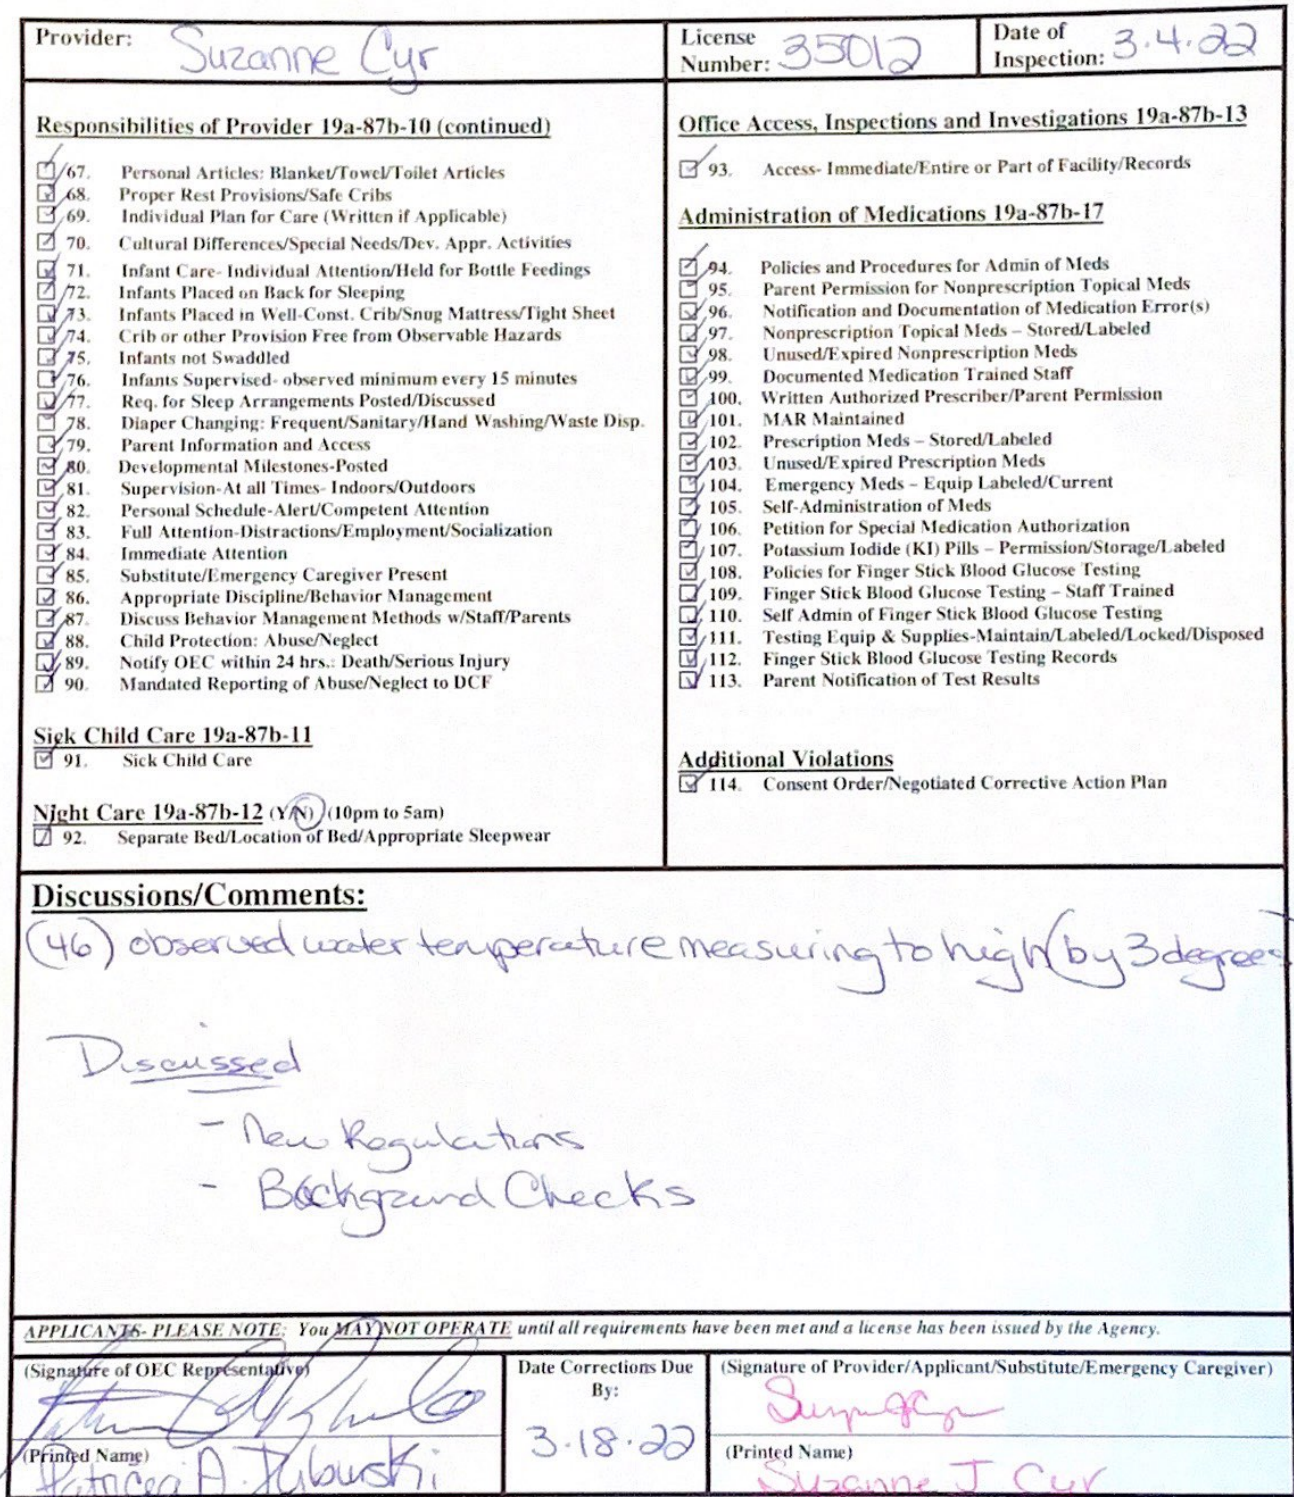 Provider: Suzanne Cyr
License Number: 35012
Date of Inspection: 3.4.22
Responsibilities of Provider 19a-87b-10 (continued)
67. Personal Articles: Blanket/Towel/Toilet Articles
68. Proper Rest Provisions/Safe Cribs
69. Individual Plan for Care (Written if Applicable)
70. Cultural Differences/Special Needs/Dev. Appr. Activities
71. Infant Care- Individual Attention/Held for Bottle Feedings
72. Infants Placed on Back for Sleeping
73. Infants Placed in Well-Const. Crib/Snug Mattress/Tight Sheet
74. Crib or other Provision Free from Observable Hazards
75. Infants not Swaddled
76. Infants Supervised- observed minimum every 15 minutes
77. Req. for Sleep Arrangements Posted/Discussed
78. Diaper Changing: Frequent/Sanitary/Hand Washing/Waste Disp.
79. Parent Information and Access
80. Developmental Milestones-Posted
81. Supervision-At all Times- Indoors/Outdoors
82. Personal Schedule-Alert/Competent Attention
83. Full Attention-Distractions/Employment/Socialization
84. Immediate Attention
85. Substitute/Emergency Caregiver Present
86. Appropriate Discipline/Behavior Management
87. Discuss Behavior Management Methods w/Staff/Parents
88. Child Protection: Abuse/Neglect
89. Notify OEC within 24 hrs.: Death/Serious Injury
90. Mandated Reporting of Abuse/Neglect to DCF
Sick Child Care 19a-87b-11
91. Sick Child Care
Night Care 19a-87b-12 (Y/N) (10pm to 5am)
92. Separate Bed/Location of Bed/Appropriate Sleepwear
Office Access, Inspections and Investigations 19a-87b-13
93. Access- Immediate/Entire or Part of Facility/Records
Administration of Medications 19a-87b-17
94. Policies and Procedures for Admin of Meds
95. Parent Permission for Nonprescription Topical Meds
96. Notification and Documentation of Medication Error(s)
97. Nonprescription Topical Meds – Stored/Labeled
98. Unused/Expired Nonprescription Meds
99. Documented Medication Trained Staff
100. Written Authorized Prescriber/Parent Permission
101. MAR Maintained
102. Prescription Meds – Stored/Labeled
103. Unused/Expired Prescription Meds
104. Emergency Meds – Equip Labeled/Current
105. Self-Administration of Meds
106. Petition for Special Medication Authorization
107. Potassium Iodide (KI) Pills – Permission/Storage/Labeled
108. Policies for Finger Stick Blood Glucose Testing
109. Finger Stick Blood Glucose Testing – Staff Trained
110. Self Admin of Finger Stick Blood Glucose Testing
111. Testing Equip & Supplies-Maintain/Labeled/Locked/Disposed
112. Finger Stick Blood Glucose Testing Records
113. Parent Notification of Test Results
Additional Violations
114. Consent Order/Negotiated Corrective Action Plan
Discussions/Comments:
(46) observed water temperature measuring to high (by 3 degrees)
Discussed
- New Regulations
- Background Checks
APPLICANTS- PLEASE NOTE: You MAY NOT OPERATE until all requirements have been met and a license has been issued by the Agency.
(Signature of OEC Representative)
(Printed Name)
Patricia A.
Date Corrections Due
By:
3.18.22
(Signature of Provider/Applicant/Substitute/Emergency Caregiver)
(Printed Name)
Suzanne J Cyr